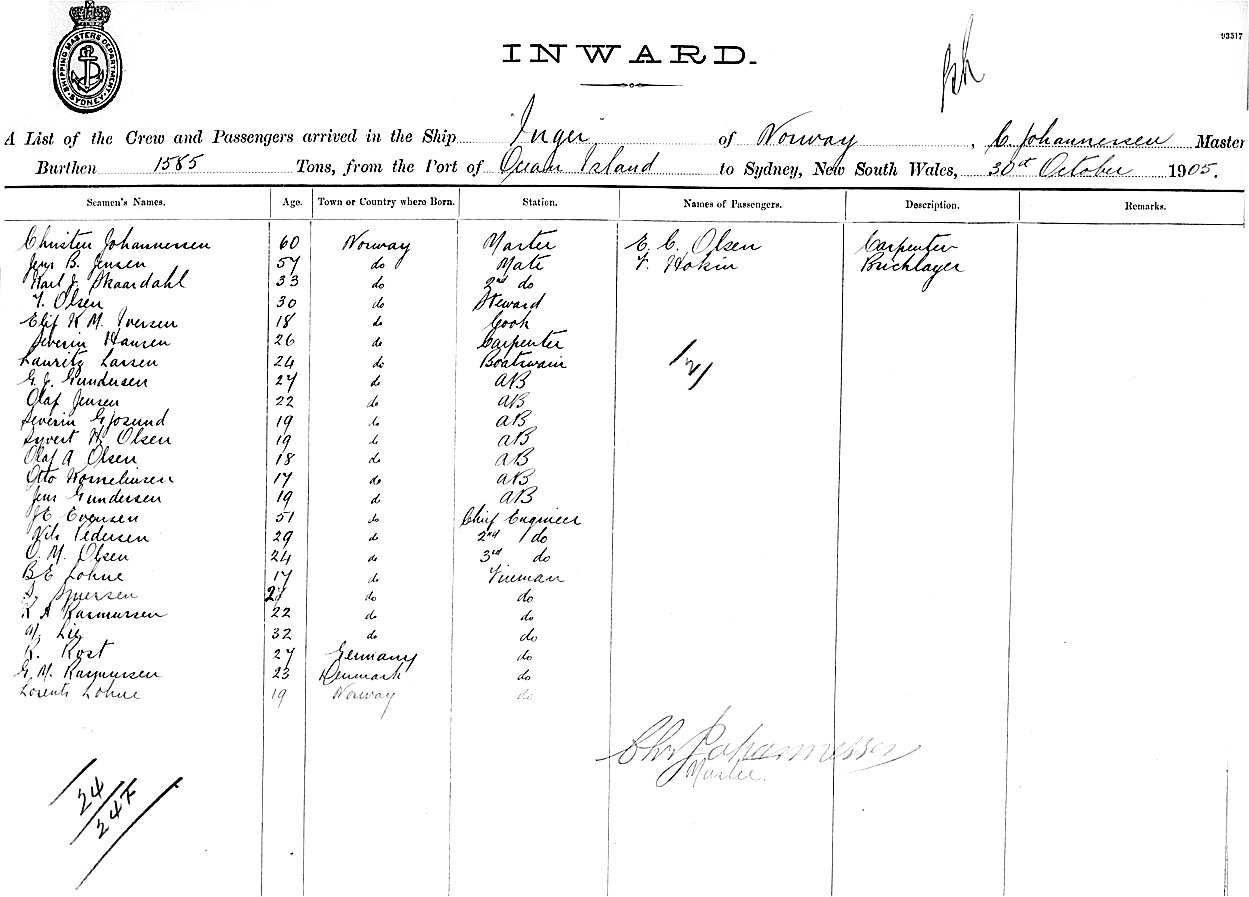 SHIPPING MASTERS DEPARTMENT
SYDNEY
93517
INWARD.
A List of the Crew and Passengers arrived in the Ship Inger of Norway, C. Johannessen Master
Burthen 1585 Tons, from the Port of Ocean Island to Sydney, New South Wales, 30th October 1905.
Seamen's Names. Age. Town or Country where Born. Station. Names of Passengers. Description. Remarks.
Christen Johannessen 60 Norway Master E. C. Olsen Carpenter
Jens B. Jensen 57 do Mate Hokin Bricklayer
Karl J. Skaardahl 33 do 2nd do
T. Olsen 30 do Steward
K M. Iversen 18 do Cook
Severin Hansen 26 do Carpenter
Lauritz Larsen 24 do Boatswain
G. J. Gundersen 27 do AB
Olaf Jensen 22 do AB
Severin Gjosund 19 do AB
Syvert K. Olsen 19 do AB
Olaf A Olsen 18 do AB
Otto Korneliusen 17 do AB
Jens Gundersen 19 do AB
Evensen 51 do Chief Engineer
Nils Pedersen 29 do 2nd do
O. M. Olsen 24 do 3rd do
B E Lohne 17 do Fireman
do do
K A Rasmussen 22 do do
Lie 32 do do
K. Rost 27 Germany do
G. M. Rasmussen 23 Denmark do
Lorents Lohne 19 Norway do
/2/
Chr Johannessen
Master.
24
24